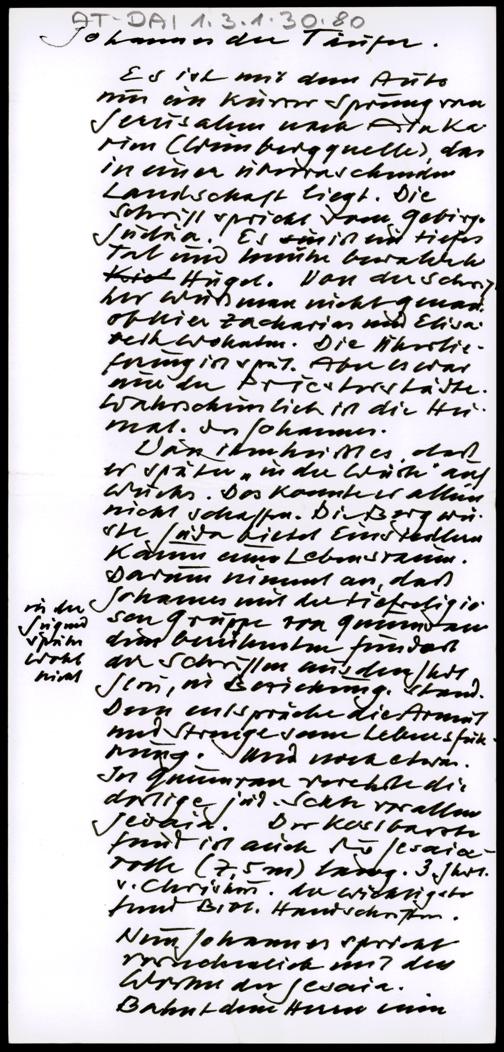 AT-DAI 1.3.1.30.80
Johannes der Täufer.
Es ist mit dem Auto
nur ein kurzer Sprung von
Jerusalem nach Ain Ka
rim (Weinbergquelle), das
in einer überraschenden
Landschaft liegt. Die
Schrift spricht vom Gebirge
Judäa. Es ist ein tiefes
Tal und bewaldete
Hügel. Von der Schrift
her weiß man nicht genau
ob hier Zacharias und Elisa
beth wohnten. Die Überlie-
ferung ist spät. Aber es war
eine der Priesterstädte.
Wahrscheinlich ist die Hei
mat des Johannes.
Von ihm heißt es, daß
er später „in der Wüste" auf
wuchs. Das konnte er allein
nicht schaffen. Die Bergwü-
ste Juda bietet Einsiedlern
kaum einen Lebensraum.
Darum nimmt an, daß
Johannes mit der tiefreligiö
sen Gruppe von Qumran
dem berühmten Fundort
der Schriften aus der Zeit
Jesu, in Beziehung stand.
Dem entspräche die Armut
und Strenge seiner Lebensfüh-
rung. Und noch etwas.
In Qumran verehrte die
dortige jüd. Sekte vor allem
Jesaia. Der kostbarste
Fund ist auch die Jesaia-
rolle (7,5m) lang. 3. Jhrt.
v. Christus. der wichtigste
Fund Bibl. Handschriften.
Nun Johannes spricht
vornehmlich mit den
Worten des Jesaia.
Bahnt dem Herrn einen
in der
Jugend
später
wohl
nicht